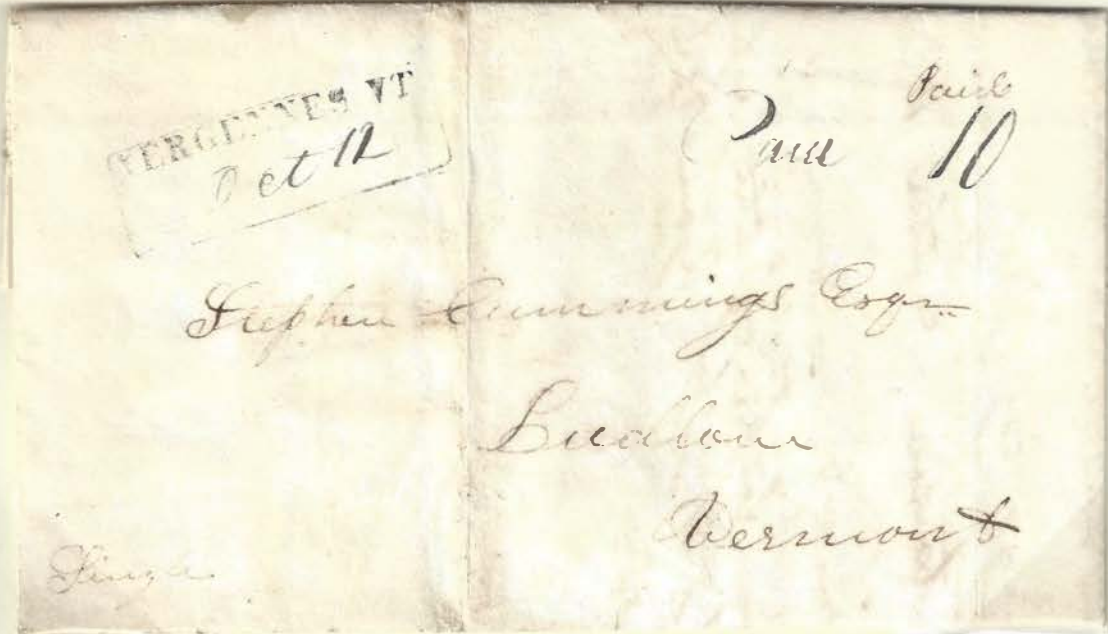 VERGENNES VT
Oct 12
Paid
Paid 10
Stephen Cummings Esqr
Ludlow
Vermont
Single